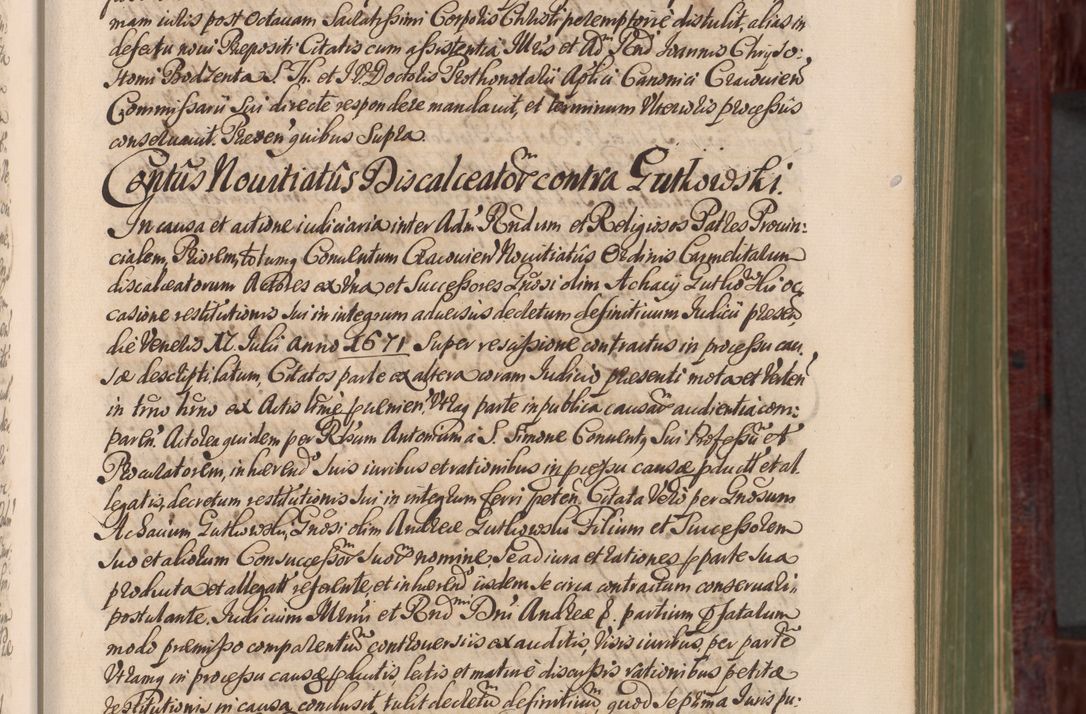 mam iuris post Octauam Sacratissimi Corporis Christi peremptorie distulit, alias in
defectu noui Prepositi Citatis cum assistentia Illris et Adm Rnd Ioannis Chryso:
stomi Bodzenta S. Th. et I.V. Doctoris Prothonotarij Aplici Canonici Cracouien
Commissarij sui directe respondere mandauit, et terminum Vteriolis processus
conseruauit. Presen quibus Supra.
Contus Nouitiatus Discalceator contra Gutkowski.
In causa et actione iudiciaria inter Adm Rndum et Religiosos Patres Prouin:
cialem, Priorem, totumq Conuentum Cracouien Nouitiatus Ordinis Carmelitarum
discalceatorum Actores ex Vna, et Successores Gnosi olim Achacij Gutkowski oc
casione restitutionis sui in integrum aduersus decretum definitiuum Iudicij presen,
die Veneris 17. Iulij Anno 1671 super rescissione contractus in processu cau,
sæ descripti, latum, Citatos parte ex altera coram Iudicio presenti mota et Verten
in trno hrno ex Actis lime prouenien, Vtraq parte in publica causar audientia com:
paren. Actorea quidem per Rlsum Antonium a S. Simone Conuents sui Professu et
Procuratorem, inhærend suis iuribus et rationibus in processu causæ product et al
legatis, decretum restitutionis sui in integrum ferri peten, Citata Vero per Gnosum
Achacium Gutkowski, Gnosi olim Andreæ Gutkowski Filium et Successorem
suo et aliorum Consuccessor suor nomine, se ad iura et rationes p parte sua
producta et allegatt referente, et inhærend ijsdem se circa contractum conseruari,
postulante. Iudicium Illmi et Rndmi Dni Andreæ E. partium p fatarum
modo præmisso comparentiu controuersijs exauditis, Visis iuribus, per parte
Vtramq in processu causæ pductis, lectis et mature discussis rationibus petitæ
restitutionis in causa, conclusit, tulit decretu definitiuu, quod se prima Iuris pu: